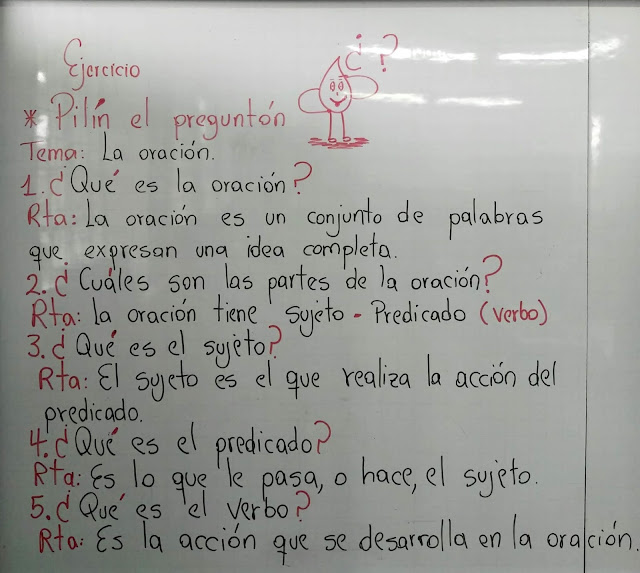 Ejercicio
¿?
* Pilín el preguntón
Tema: La oración.
1. ¿Qué es la oración?
Rta: La oración es un conjunto de palabras
que expresan una idea completa.
2. ¿Cuáles son las partes de la oración?
Rta: la oración tiene sujeto - Predicado (verbo)
3. ¿Qué es el sujeto?
Rta: El sujeto es el que realiza la acción del
predicado.
4. ¿Qué es el predicado?
Rta: Es lo que le pasa, o hace, el sujeto.
5. ¿Qué es el verbo?
Rta: Es la acción que se desarrolla en la oración.